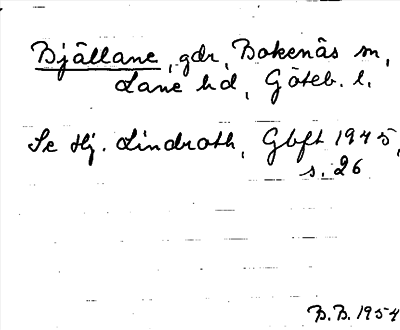 Bjällane, gdr, Bokenäs sn,
Lane hd, Göteb. l.
Se Hj. Lindroth, Gbft 1945,
s. 26
B.B. 1954